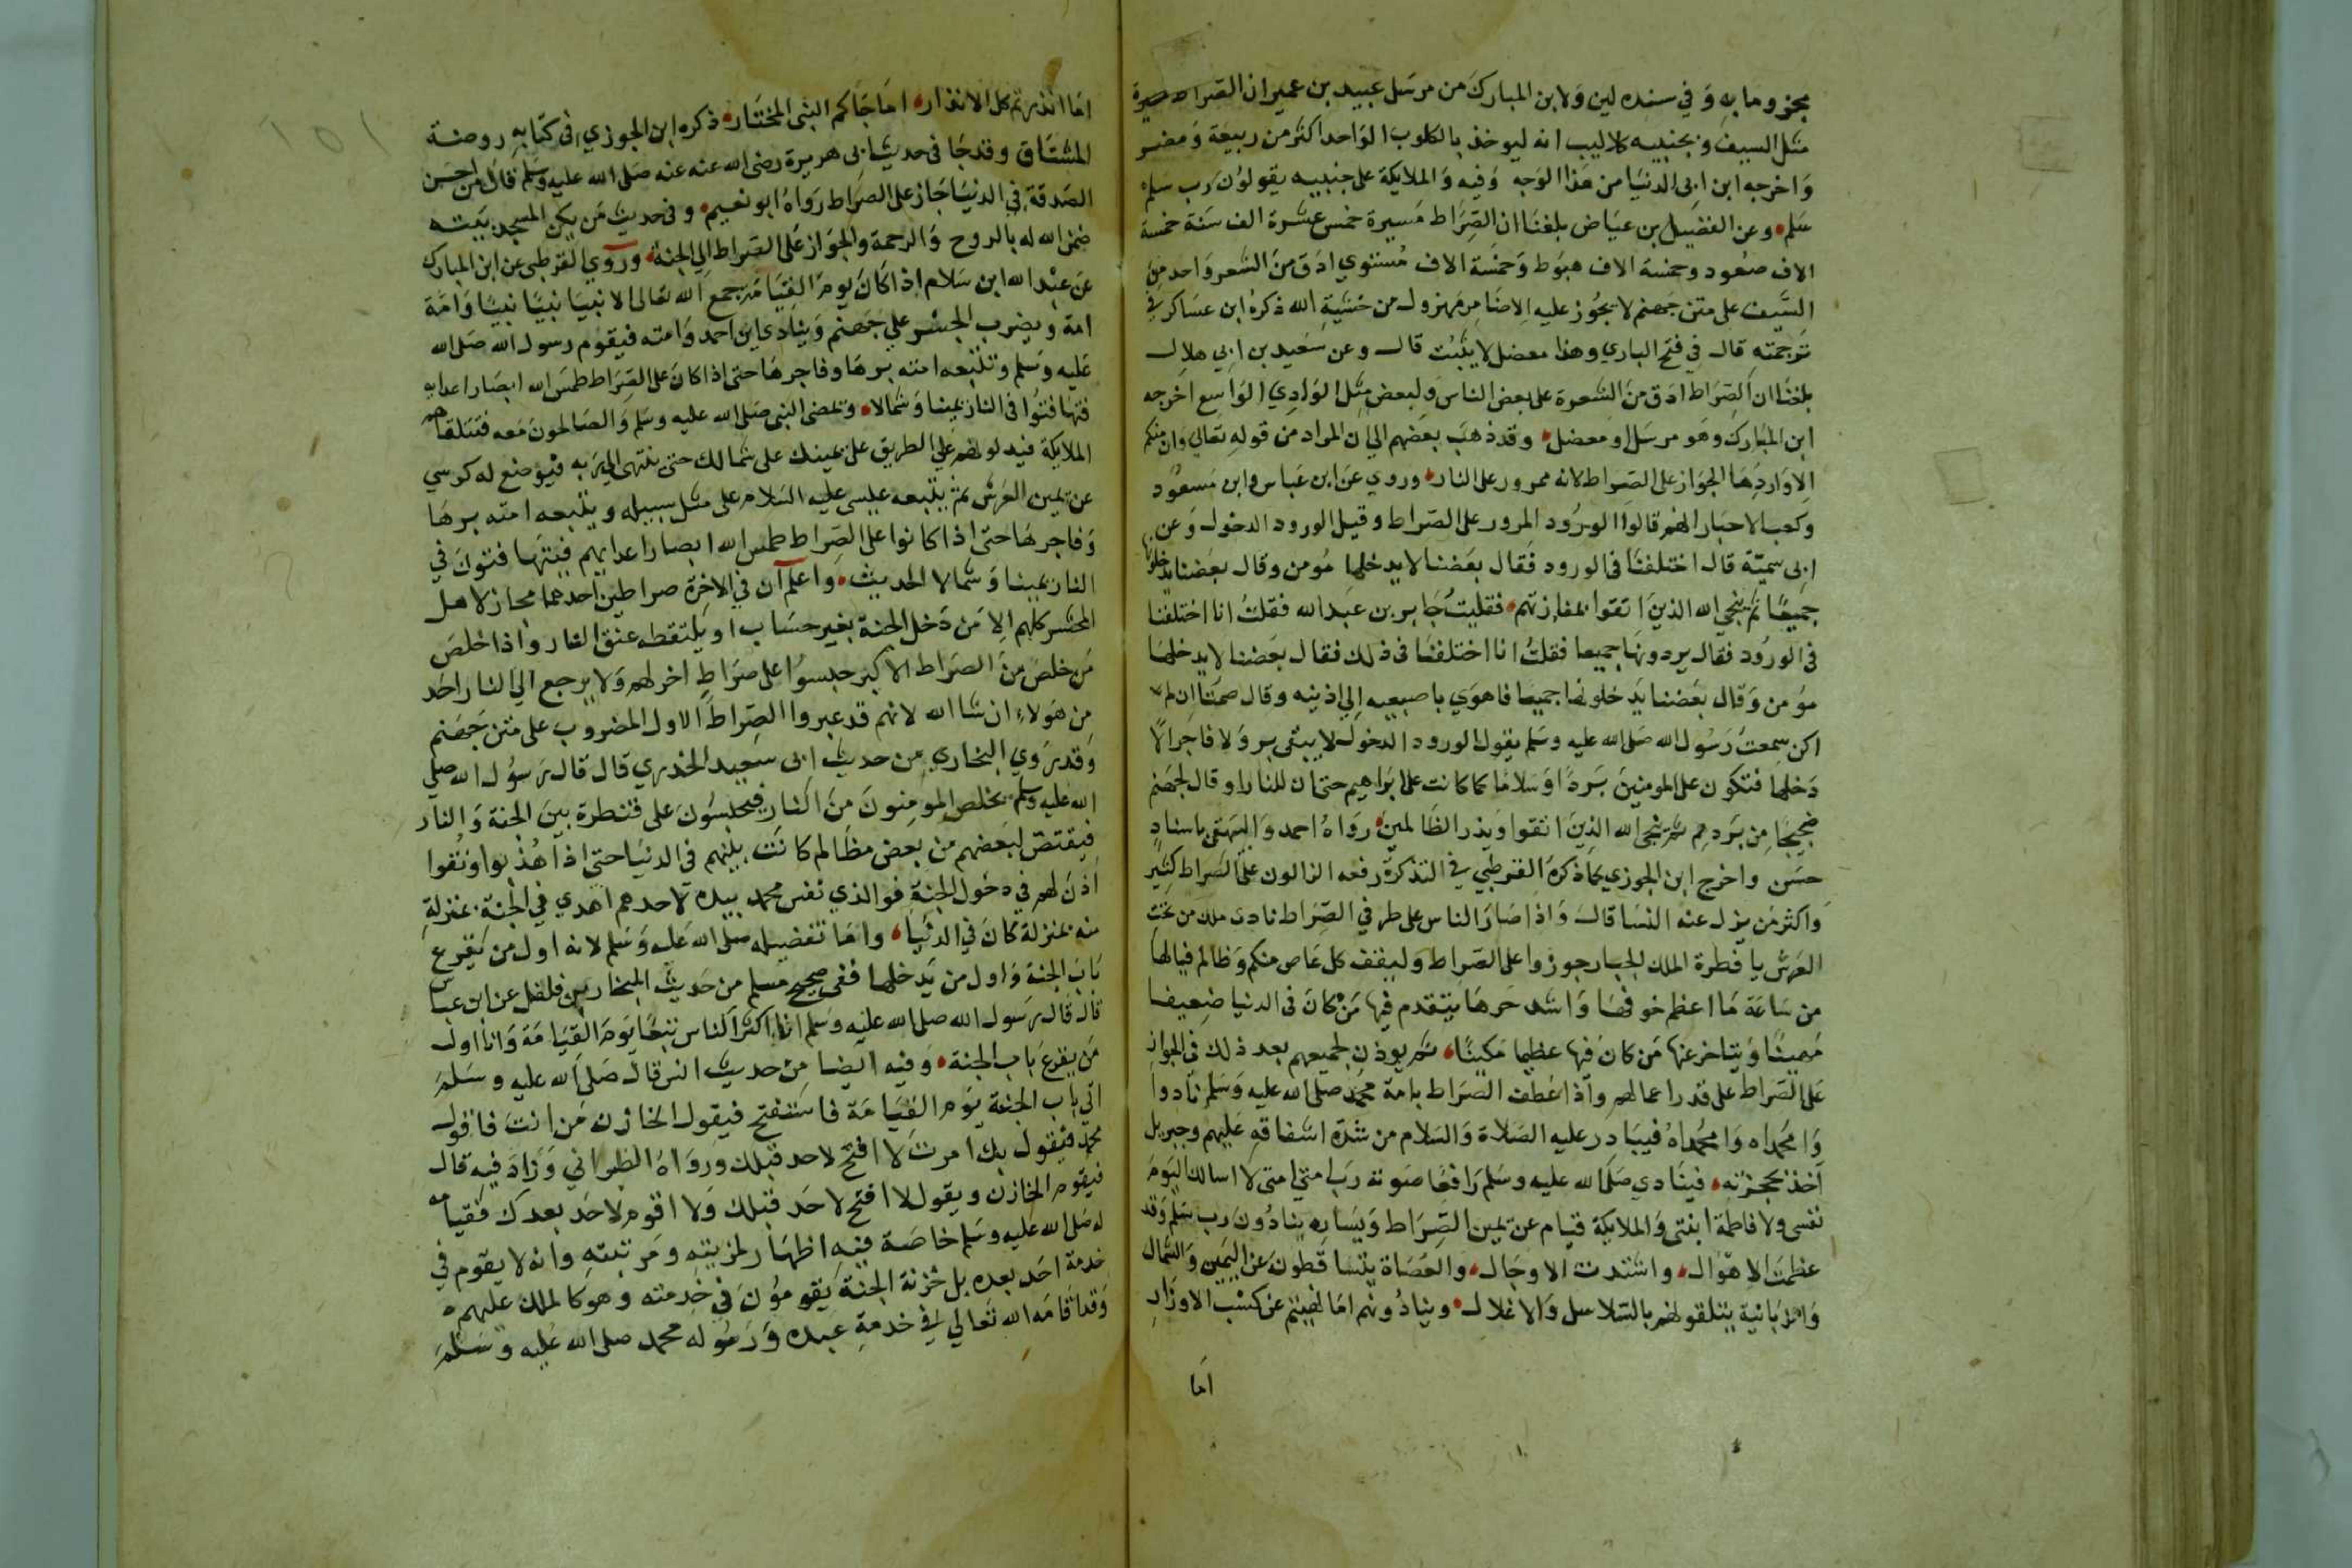 مجزوما به وفي سنده لين ولابن المبارك من مرسل عبيد بن عمير ان الصراط
مثل السيف وبجنبيه كلاليب انه ليوخذ بالكلوب الواحد اكثر من ربيعة ومضر
واخرجه ابن ابي الدنيا من هذا الوجه وفيه والملايكة على جنبيه يقولون رب سلم
سلم وعن الفضيل بن عياض بلغنا ان الصراط مسيرة خمس عشرة الف سنة خمسة
الاف صعود وخمسة الاف هبوط وخمسة الاف مستوي ادق من الشعر واحد من
السيف على متن جهنم لا يجوز عليه الا ضامر مهزول من خشية الله ذكره ابن عساكر في
ترجمته قال في فتح الباري وهذا معضل لا يثبت قال وعن سعيد بن ابي هلال
بلغنا ان الصراط ادق من الشعرة على بعض الناس ولبعض مثل الوادي الواسع اخرجه
ابن المبارك وهو مرسل او معضل وقد ذهب بعضهم الي ان المراد من قوله تعالي وان منكم
الا واردها الجواز على الصراط لانه ممرور على النار وروي عن ابن عباس وابن مسعود
وكعب الاحبار انهم قالوا الورود المرور على الصراط وقيل الورود الدخول وعن
ابي سمية قال اختلفنا في الورود فقال بعضنا لا يدخلها مومن وقال بعضنا يدخلونها
جميعا ثم ينجي الله الذين اتقوا بمفازتهم فلقيت جابر بن عبد الله فقلت انا اختلفنا
في الورود فقال يردونها جميعا فقلت انا اختلفنا في ذلك فقال بعضنا لا يدخلها
مومن وقال بعضنا يدخلونها جميعا فاهوي باصبعيه الي اذنيه وقال صمتا ان لم
اكن سمعت رسول الله صلى الله عليه وسلم يقول الورود الدخول لا يبقى بر ولا فاجر الا
دخلها فتكون على المومنين بردا وسلاما كما كانت على ابراهيم حتى ان للنار او قال لجهنم
ضجيجا من بردهم ثم ينجي الله الذين اتقوا ويذر الظالمين رواه احمد والبيهقى باسناد
حسن واخرج ابن الجوزي كما ذكره القرطبي في التذكرة رفعه الزالون على الصراط كثير
واكثر من يزل عنه النسا قال واذا صار الناس على طرفي الصراط نادى ملك من تحت
العرش يا فطرة الملك الجبار جوزوا على الصراط وليقف كل عاص منكم وظالم فيالها
من ساعة ما اعظم خوفها واشد حرها يتقدم فيها من كان في الدنيا ضعيفا
مهينا ويتاخر عنها من كان فيها عظيما مكينا ثم يوذن لجميعهم بعد ذلك في الجواز
على الصراط على قدر اعمالهم واذا عطف الصراط بامة محمد صلى الله عليه وسلم نادوا
وامحمداه وامحمداه فيبادر عليه الصلاة والسلام من شدة اشفاقه عليهم وجبريل
اخذ بحجزته فينادي صلى الله عليه وسلم رافعا صوته رب امتي امتي لا اسالك اليوم
نفسي ولا فاطمة ابنتي والملايكة قيام عن يمين الصراط ويساره ينادون رب سلم وقد
عظمت الاهوال واشتدت الاوجال والعصاة يتساقطون عن اليمين والشمال
والزبانية يتلقونهم بالسلاسل والاغلال وينادونهم اما نهيتم عن كسب الاوزار
اما
اما انذرتم كل الانذار اما جاكم النبي المختار ذكره ابن الجوزي في كتابه روضة
المشتاق وقد جا في حديث ابي هريرة رضى الله عنه عنه صلى الله عليه وسلم قال من احسن
الصدقة في الدنيا جاز على الصراط رواه ابو نعيم وفي حديث من يكن المسجد بيته
ضمن الله له بالروح والرحمة والجواز على الصراط الي الجنة وروي القرطبي عن ابن المبارك
عن عبد الله ابن سلام اذا كان يوم القيامة جمع الله تعالى الانبيا نبيا نبيا وامة
امة ويضرب الجسر علي جهنم وينادي اين احمد وامته فيقوم رسول الله صلى الله
عليه وسلم وتتبعه امته برها وفاجرها حتى اذا كان على الصراط طمس الله ابصار اعدايه
فتهافتوا في النار يمينا وشمالا ويمضى النبي صلى الله عليه وسلم والصالحون معه فتتلقاهم
الملايكة فيدلونهم علي الطريق على يمينك على شمالك حتى ينتهى الي ربه فيوضع له كرسي
عن يمين العرش ثم يتبعه عيسى عليه السلام على مثل سبيله ويتبعه امته برها
وفاجرها حتى اذا كانوا على الصراط طمس الله ابصار اعدايهم فيتهافتون في
النار يمينا وشمالا الحديث واعلم ان في الاخرة صراطين احدهما مجاز لاهل
المحشر كلهم الا من دخل الجنة بغير حساب او يلتقطه عنق النار واذا خلص
من خلص من الصراط الاكبر حبسوا على صراط اخر لهم ولا يرجع الي النار احد
من هولاء ان شا الله لانهم قد عبروا الصراط الاول المضروب على متن جهنم
وقد روي البخاري من حديث ابي سعيد الخدري قال قال رسول الله صلى
الله عليه وسلم يخلص المومنون من النار فيحبسون على قنطرة بين الجنة والنار
فيقتص لبعضهم من بعض مظالم كانت بينهم في الدنيا حتى اذا هذبوا ونقوا
اذن لهم في دخول الجنة فوالذي نفس محمد بيده لاحدهم اهدي في الجنة بمنزله
منه بمنزلة كان في الدنيا واما تفضيله صلى الله عليه وسلم لانه اول من يقرع
باب الجنة واول من يدخلها ففي صحيح مسلم من حديث المختار بن فلفل عن
قال قال رسول الله صلى الله عليه وسلم انا اكثر الناس تبعا يوم القيامة وانا اول
من يقرع باب الجنة وفيه ايضا من حديث انس قال صلى الله عليه وسلم
اتي باب الجنة يوم القيامة فاستفتح فيقول الخازن من انت فاقول
محمد فيقول بك امرت لا افتح لاحد قبلك ورواه الطبراني وزاد فيه قال
فيقوم الخازن ويقول لا افتح لاحد قبلك ولا اقوم لاحد بعدك فقيامه
له صلى الله عليه وسلم خاصة فيه اظهار لمزيته ومرتبته وانه لا يقوم في
خدمة احد بعده بل خزنة الجنة يقومون في خدمته وهو كالملك عليهم
وقد اقامه الله تعالي في خدمة عبده ورسوله محمد صلى الله عليه وسلم